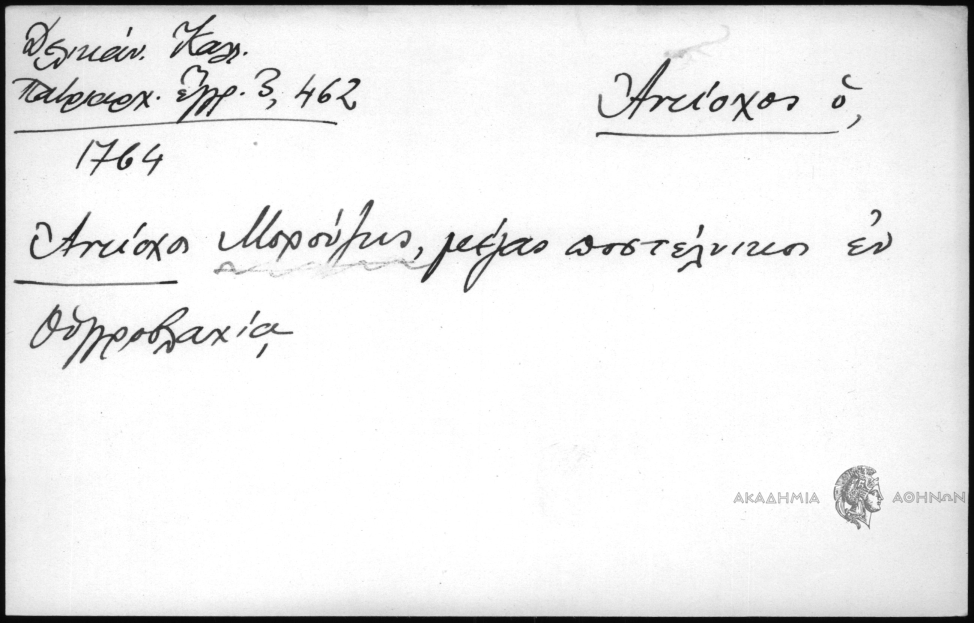 Δελικάν. Καλ.
Πατριαρχ. ἔγγρ. 3, 462
Ἀντίοχος ὁ,
1764
Ἀντίοχος Μορούζης, μέγας ποστέλνικος ἐν
Οὑγγροβλαχίᾳ
ΑΚΑΔΗΜΙΑ ΑΘΗΝΩΝ